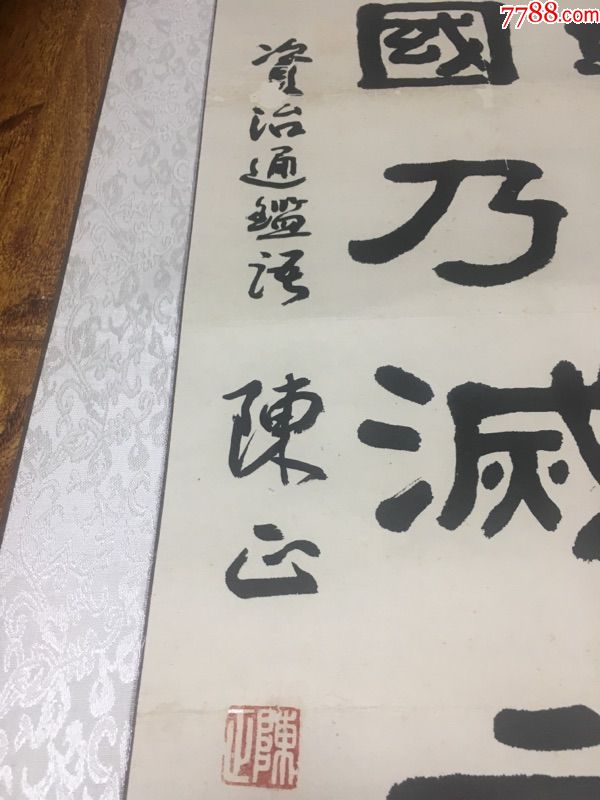 7788.com
國乃滅
資治通鑑語
陳正
陳正